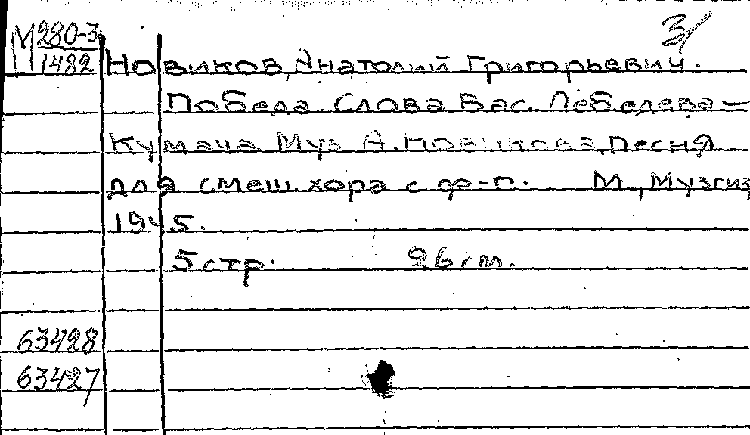 3
М 280-3
1482
Новиков, Анатолий Григорьевич.
Победа. Слова Вас. Лебедева-
Кумача Муз А. Новикова. Песня
для смеш. хора с ф-п. М., Музгиз
1945.
5 стр. 26 см.
63428
63427